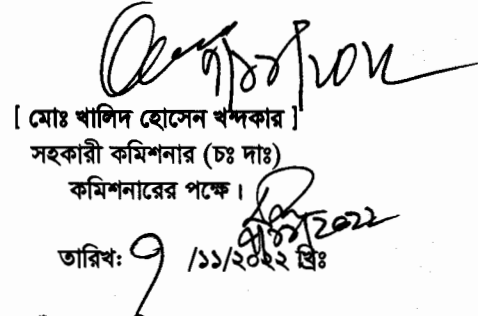 [ মোঃ খালিদ হোসেন খন্দকার ]
সহকারী কমিশনার (চঃ দাঃ)
কমিশনারের পক্ষে।
তারিখঃ ৭ /১১/২০২২ খ্রিঃ